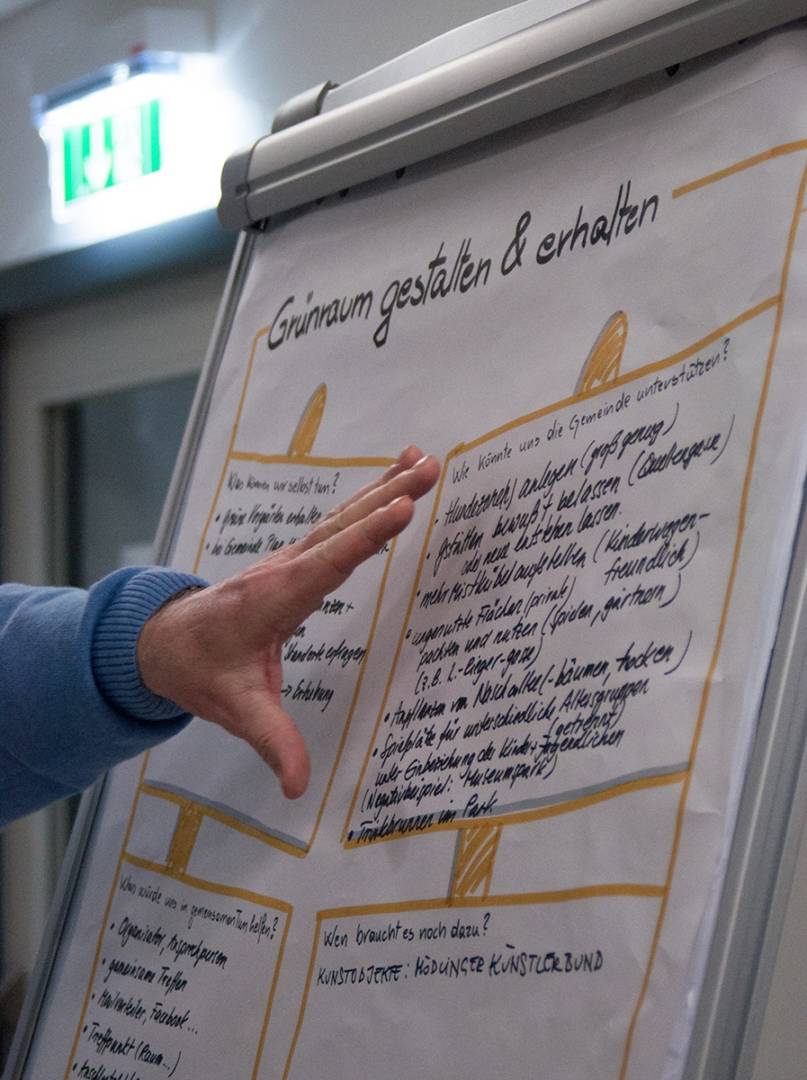 Grünraum gestalten & erhalten
Was können wir selbst tun?
• grüne Vorgärten erhalten
• bei Gemeinde
Standorte erfragen
→ Erhebung
Wie könnte uns die Gemeinde unterstützen?
• Hundezone(n) anlegen (groß genug)
• Gstätten bewußt belassen
od. neue entstehen lassen.
• mehr Mistkübel aufstellen (Kinderwagen-
freundlich)
• ungenutzte Flächen (private)
pachten und nutzen (spielen, gärtnern)
(z.B. L.-
• Anpflanzen von
• Spielplätze für unterschiedliche Altersgruppen
(getrennt)
unter Einbeziehung der Kinder + Jugendlichen
(Negativbeispiel: Museumspark)
• Trinkbrunnen im Park
Was würde uns im gemeinsamen Tun helfen?
• Organisator, Ansprechperson
• gemeinsame Treffen
• Mailverteiler, Facebook...
• Treffpunkt (Raum...)
Wen braucht es noch dazu?
KUNSTOBJEKTE: MÖDLINGER KÜNSTLERBUND